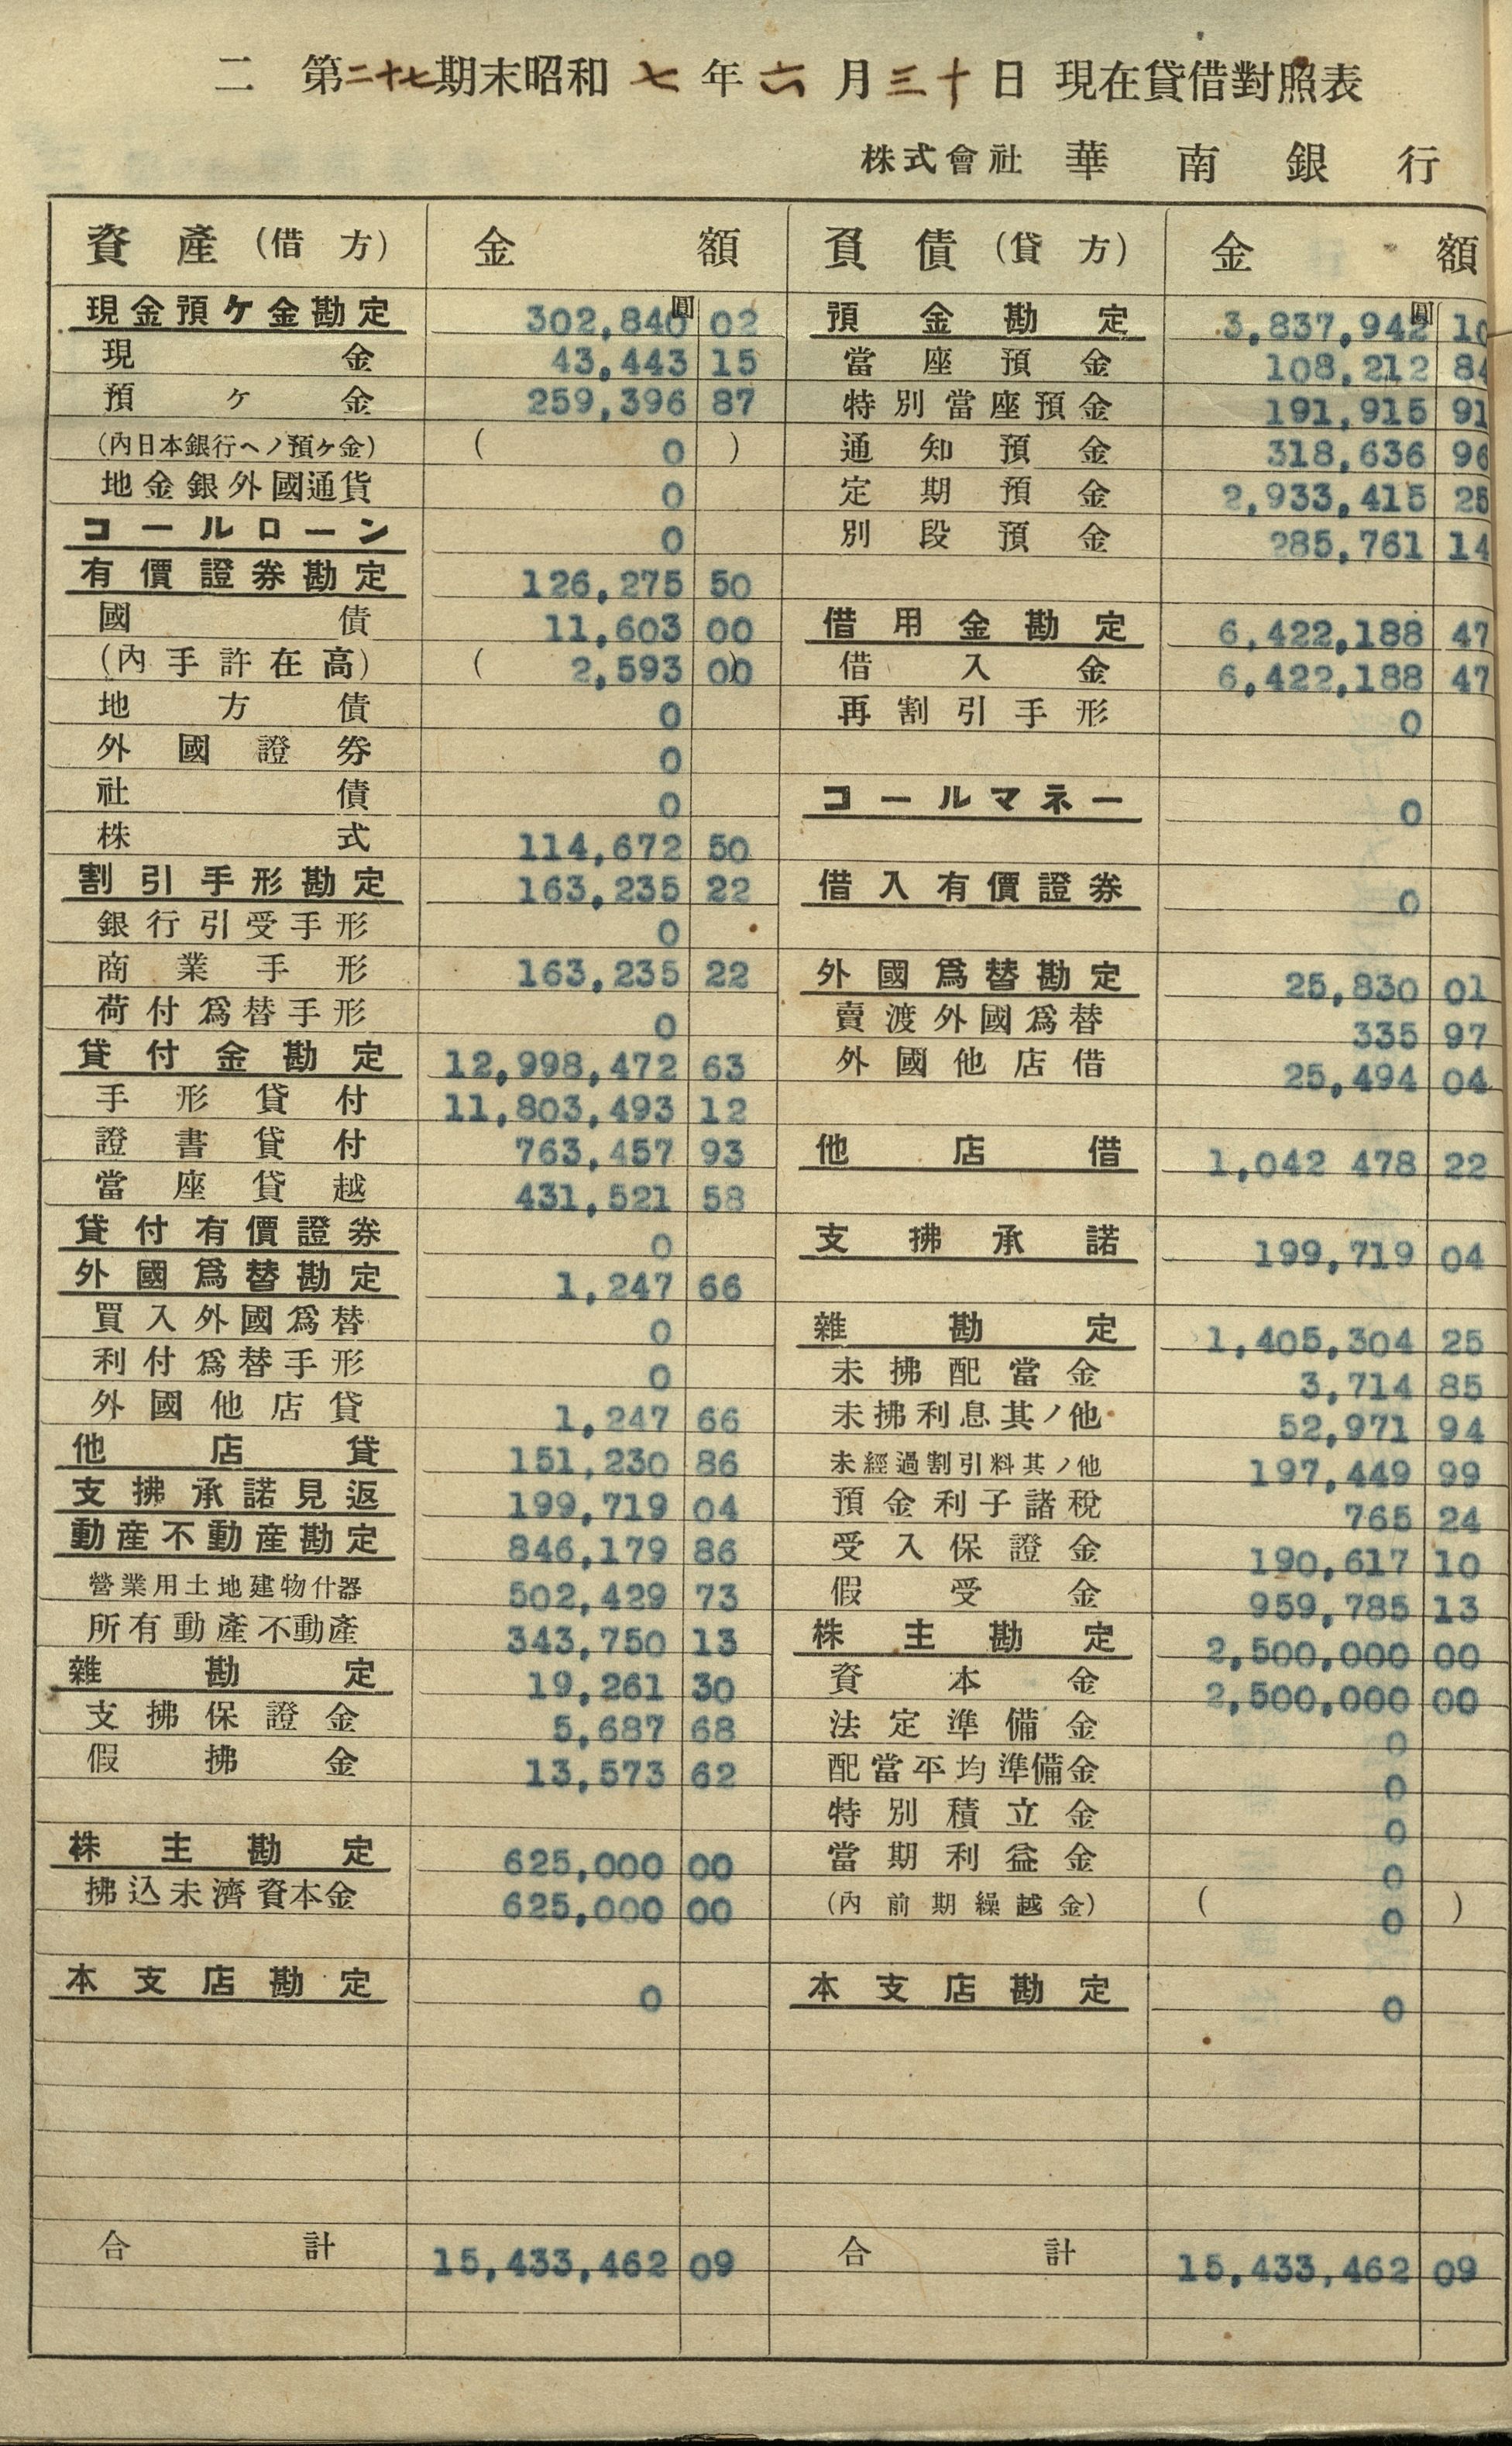 二 第二十七期末昭和七年六月三十日 現在貸借對照表
株式會社 華南銀行
資產(借方) 金額 負債(貸方) 金額
現金預ケ金勘定 302,840圓02 預金勘定 3,837,942圓10
現金 43,443 15 當座預金 108,212 84
預ケ金 259,396 87 特別當座預金 191,915 91
(內日本銀行ヘノ預ヶ金) ( 0 ) 通知預金 318,636 96
地金銀外國通貨 0 定期預金 2,933,415 25
コールローン 0 別段預金 285,761 14
有價證券勘定 126,275 50
國債 11,603 00 借用金勘定 6,422,188 47
(內手許在高) ( 2,593 00) 借入金 6,422,188 47
地方債 0 再割引手形 0
外國證券 0
社債 0 コールマネー 0
株式 114,672 50
割引手形勘定 163,235 22 借入有價證券 0
銀行引受手形 0
商業手形 163,235 22 外國爲替勘定 25,830 01
荷付爲替手形 0 賣渡外國爲替 335 97
貸付金勘定 12,998,472 63 外國他店借 25,494 04
手形貸付 11,803,493 12
證書貸付 763,457 93 他店借 1,042 478 22
當座貸越 431,521 58
貸付有價證券 0 支拂承諾 199,719 04
外國爲替勘定 1,247 66
買入外國爲替 0 雜勘定 1,405,304 25
利付爲替手形 0 未拂配當金 3,714 85
外國他店貸 1,247 66 未拂利息其ノ他 52,971 94
他店貸 151,230 86 未經過割引料其ノ他 197,449 99
支拂承諾見返 199,719 04 預金利子諸稅 765 24
動産不動産勘定 846,179 86 受入保證金 190,617 10
營業用土地建物什器 502,429 73 假受金 959,785 13
所有動產不動產 343,750 13 株主勘定 2,500,000 00
雜勘定 19,261 30 資本金 2,500,000 00
支拂保證金 5,687 68 法定準備金 0
假拂金 13,573 62 配當平均準備金 0
特別積立金 0
株主勘定 625,000 00 當期利益金 0
拂込未濟資本金 625,000 00 (內前期繰越金) ( 0 )
本支店勘定 0 本支店勘定 0
合計 15,433,462 09 合計 15,433,462 09